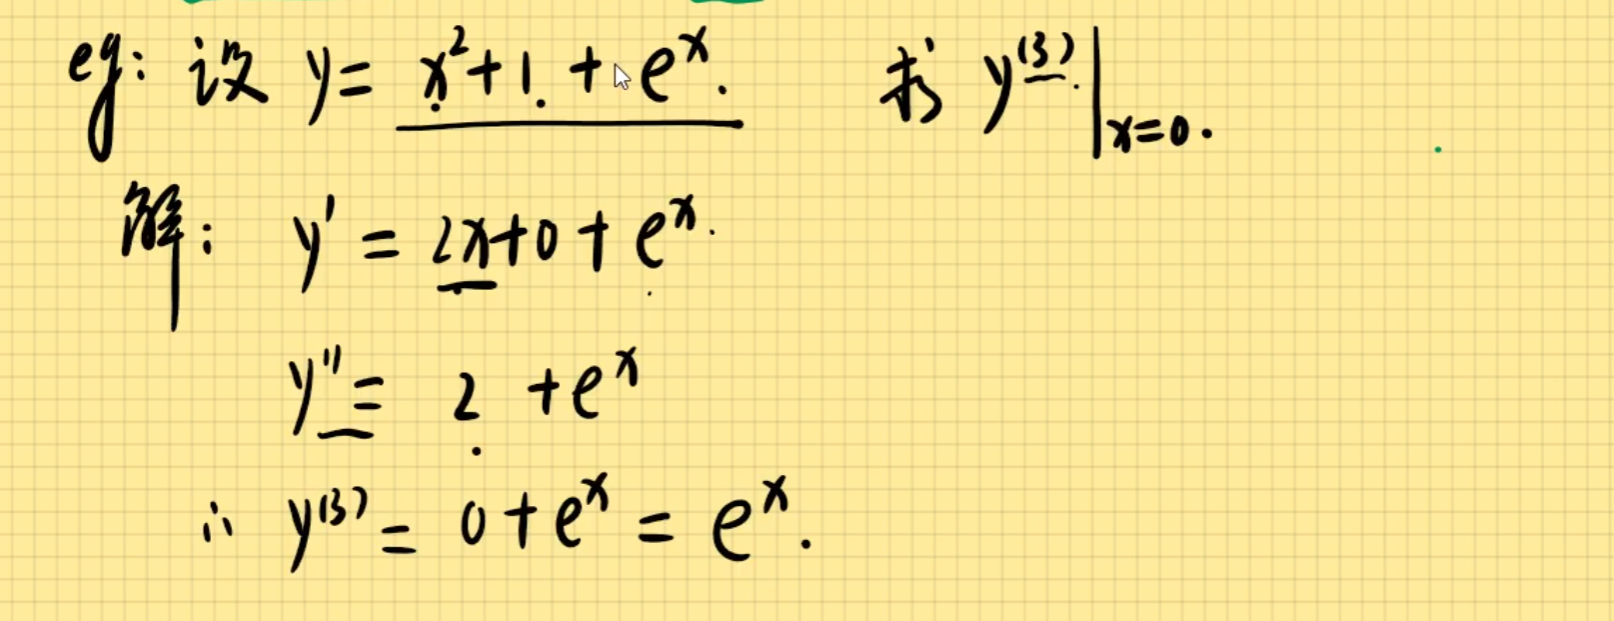 eg: 设 y = x²+1 + eˣ. 求 y⁽³⁾|ₓ₌₀.
解: y' = 2x+0+eˣ.
y'' = 2 +eˣ
∴ y⁽³⁾ = 0+eˣ = eˣ.